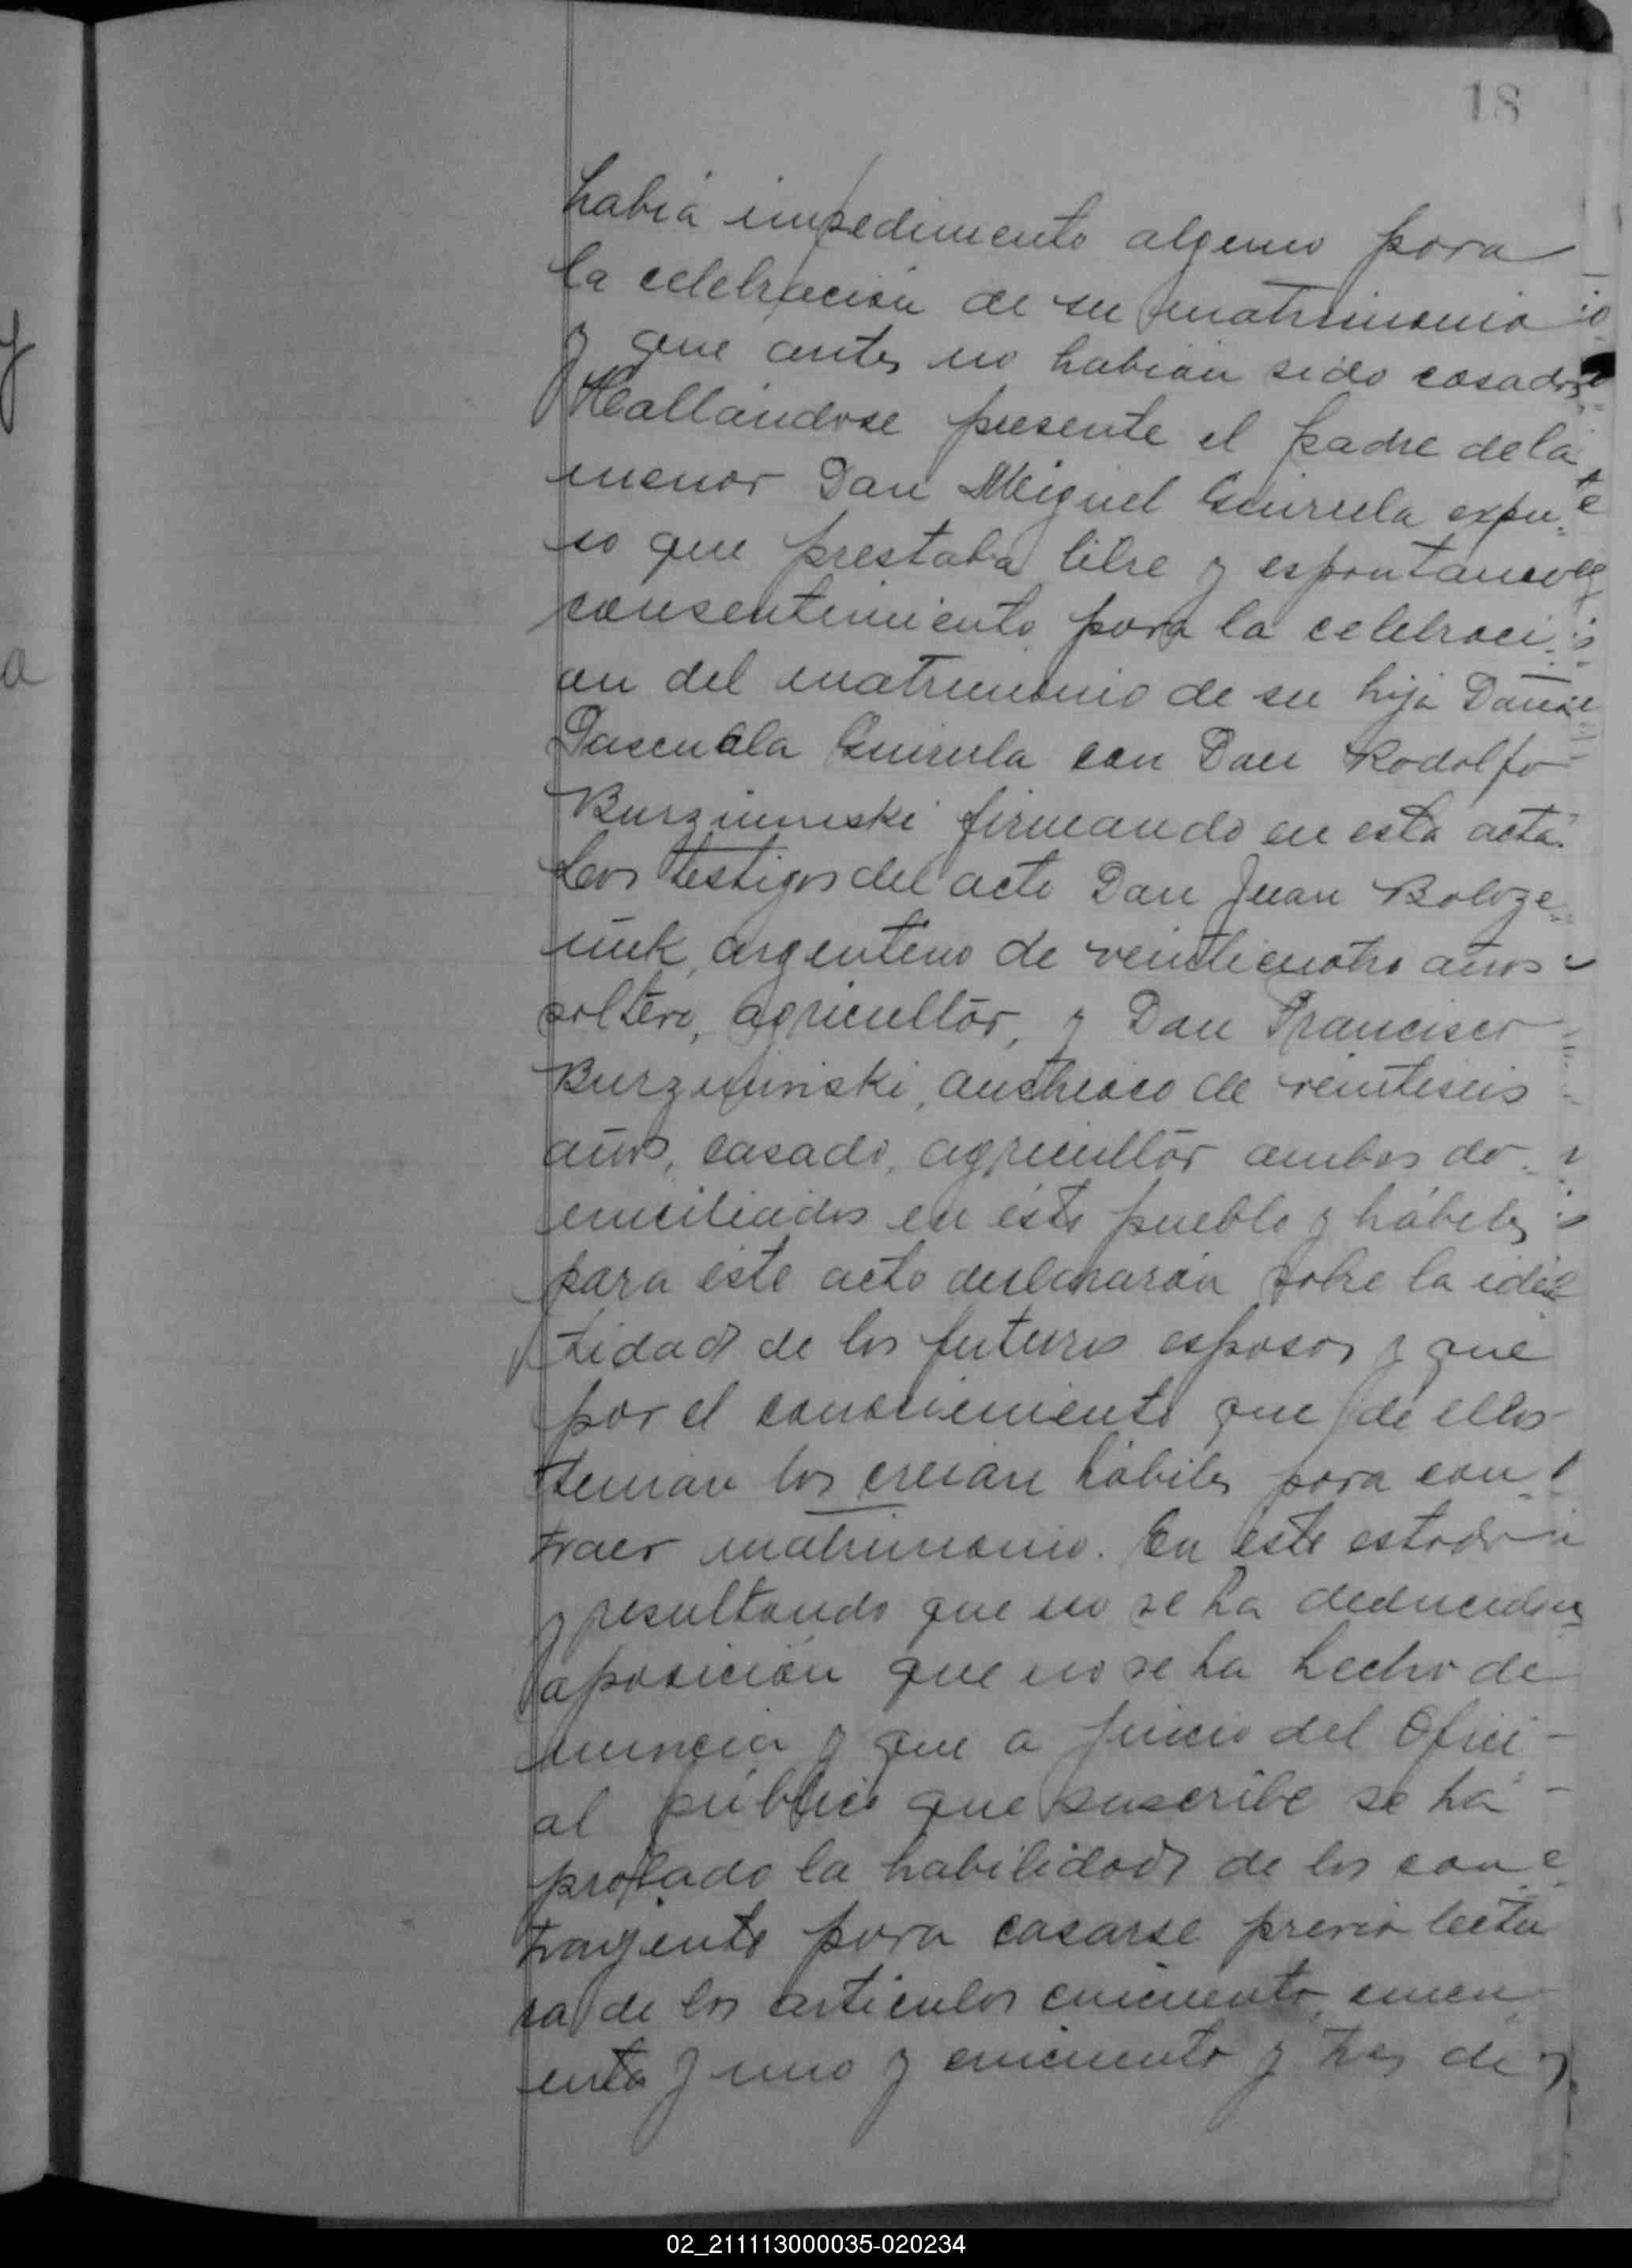 18
había impedimento alguno para
la celebración de su matrimonio
y que antes no habian sido casados
Hallándose presente el padre de la
menor Don Miguel expu-
so que prestaba libre y espontaneo
consentimiento para la celebraci-
on del matrimonio de su hija Doña
con Don Rodolfo
Burziminski firmando en esta acta.
Los testigos del acto Don Juan Boloze-
niuk, argentino de veinticuatro años
soltero, agricultor, y Don Francisco
Burziminski, austriaco de veintiseis
años, casado, agricultor ambos do-
miciliados en éste pueblo y hábiles
para éste acto declararón sobre la iden
tidad de los futuros esposos y que
por el conocimiento que de ellos
tenian los creian hábiles para con-
traer matrimonio. En este estado
y resultando que no se ha deducido
oposición que no se ha hecho de
nuncia y que a juicio del Ofici
al público que suscribe se ha
probado la habilidad de los con-
trayente para casarse previa lectu
ra de los articulos cincuenta, cincu
enta y uno y cincuenta y tres de
02_211113000035-020234